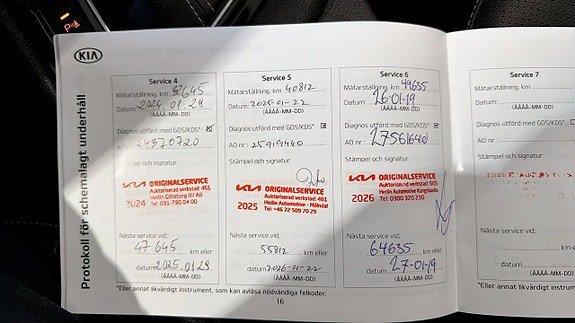 KIA
Protokoll för schemalagt underhåll
Service 4
Mätarställning, km 32645
Datum: 2024.01.29
(ÅÅÅÅ-MM-DD)
Diagnos utförd med GDS/KDS*
AO nr
Stämpel och signatur:
KIA ORIGINALSERVICE
Auktoriserad verkstad: 461
Hedin Göteborg Bil AB
2024 Tel: 031-790 04 00
Nästa service vid:
47645 km eller
datum 2025.01.29
(ÅÅÅÅ-MM-DD)
Service 5
Mätarställning, km 40812
Datum: 2025-01-22
(ÅÅÅÅ-MM-DD)
Diagnos utförd med GDS/KDS*
AO nr
Stämpel och signatur:
KIA ORIGINALSERVICE
Auktoriserad verkstad: 461
Hedin Automotive - Mölndal
2025 Tel: +46 72 509 70 29
Nästa service vid:
55812 km eller
datum 2026-01-22
(ÅÅÅÅ-MM-DD)
Service 6
Mätarställning, km 49635
Datum: 26-01-19
(ÅÅÅÅ-MM-DD)
Diagnos utförd med GDS/KDS*
AO nr 275616400
Stämpel och signatur:
KIA ORIGINALSERVICE
Auktoriserad verkstad: 505
Hedin Automotive Kungsbacka
2026 Tel: 0300 320 230
Nästa service vid:
64635 km eller
datum 27-01-19
(ÅÅÅÅ-MM-DD)
Service 7
Mätarställning, km
Datum:
(ÅÅÅÅ-MM-DD)
Diagnos utförd med GDS/KDS*
AO nr
Stämpel och signatur:
Nästa service vid:
km
datum
(ÅÅÅÅ-MM-DD)
*Eller annat likvärdigt instrument, som kan avläsa nödvändiga felkoder.
16
*Eller annat likvärdigt instrument